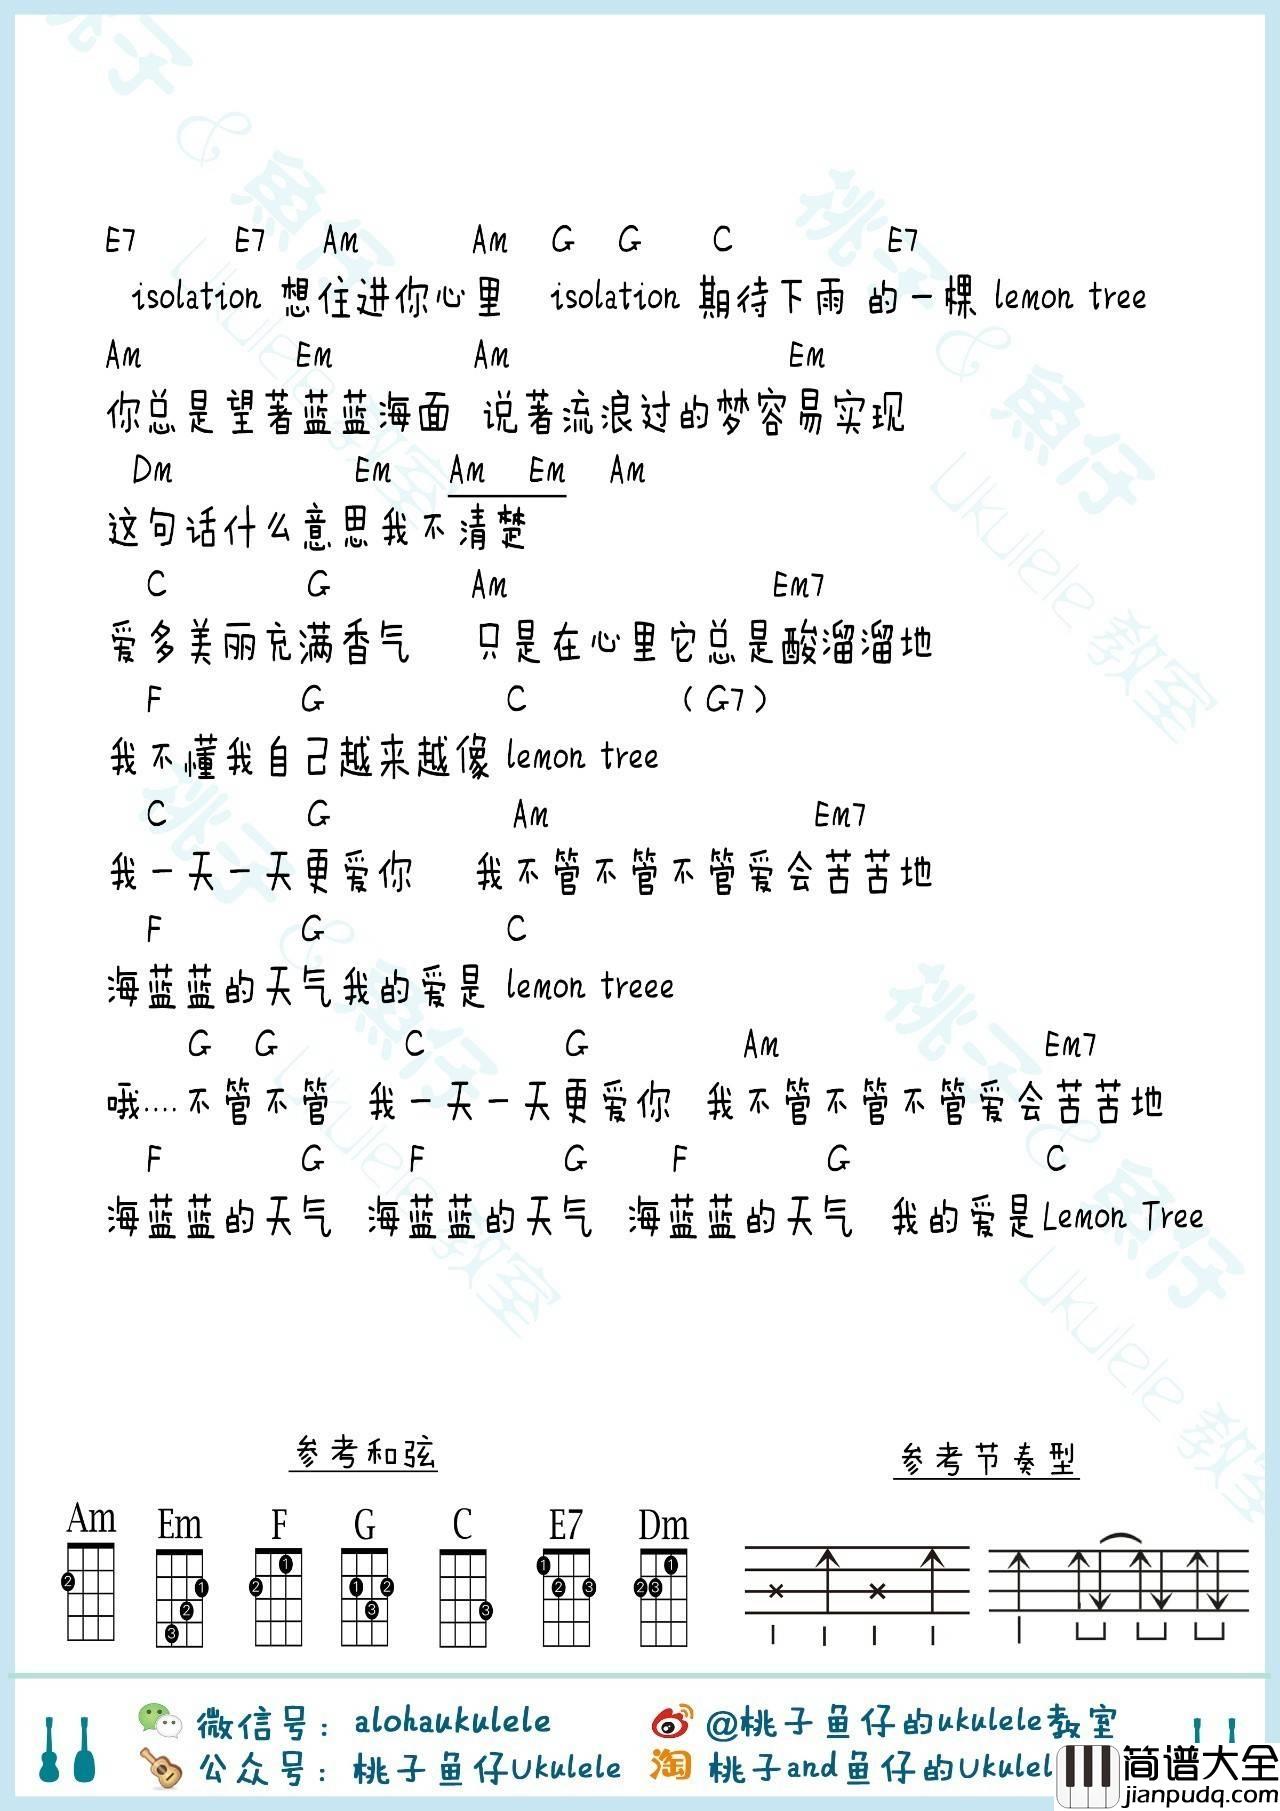 E7 E7 Am Am G G C E7
isolation 想住进你心里 isolation 期待下雨 的一棵 lemon tree
Am Em Am Em
你总是望著蓝蓝海面 说著流浪过的梦容易实现
Dm Em Am Em Am
这句话什么意思我不清楚
C G Am Em7
爱多美丽充满香气 只是在心里它总是酸溜溜地
F G C (G7)
我不懂我自己越来越像 lemon tree
C G Am Em7
我一天一天更爱你 我不管不管不管爱会苦苦地
F G C
海蓝蓝的天气我的爱是 lemon treee
G G C G Am Em7
哦....不管不管 我一天一天更爱你 我不管不管不管爱会苦苦地
F G F G F G C
海蓝蓝的天气 海蓝蓝的天气 海蓝蓝的天气 我的爱是Lemon Tree
参考和弦 参考节奏型
Am Em F G C E7 Dm
2 1 2 3 1 2 1 2 3 3 1 2 3 1 2 3
微信号：alohaukulele @桃子鱼仔的ukulele教室
公众号：桃子鱼仔Ukulele 淘 桃子and鱼仔的Ukulel
简谱大全
jianpudq.com
桃子 & 魚仔
Ukulele 教室
桃子 & 魚仔
Ukulele 教室
桃子 & 魚仔
Ukulele 教室
桃子 & 魚仔
Ukulele 教室